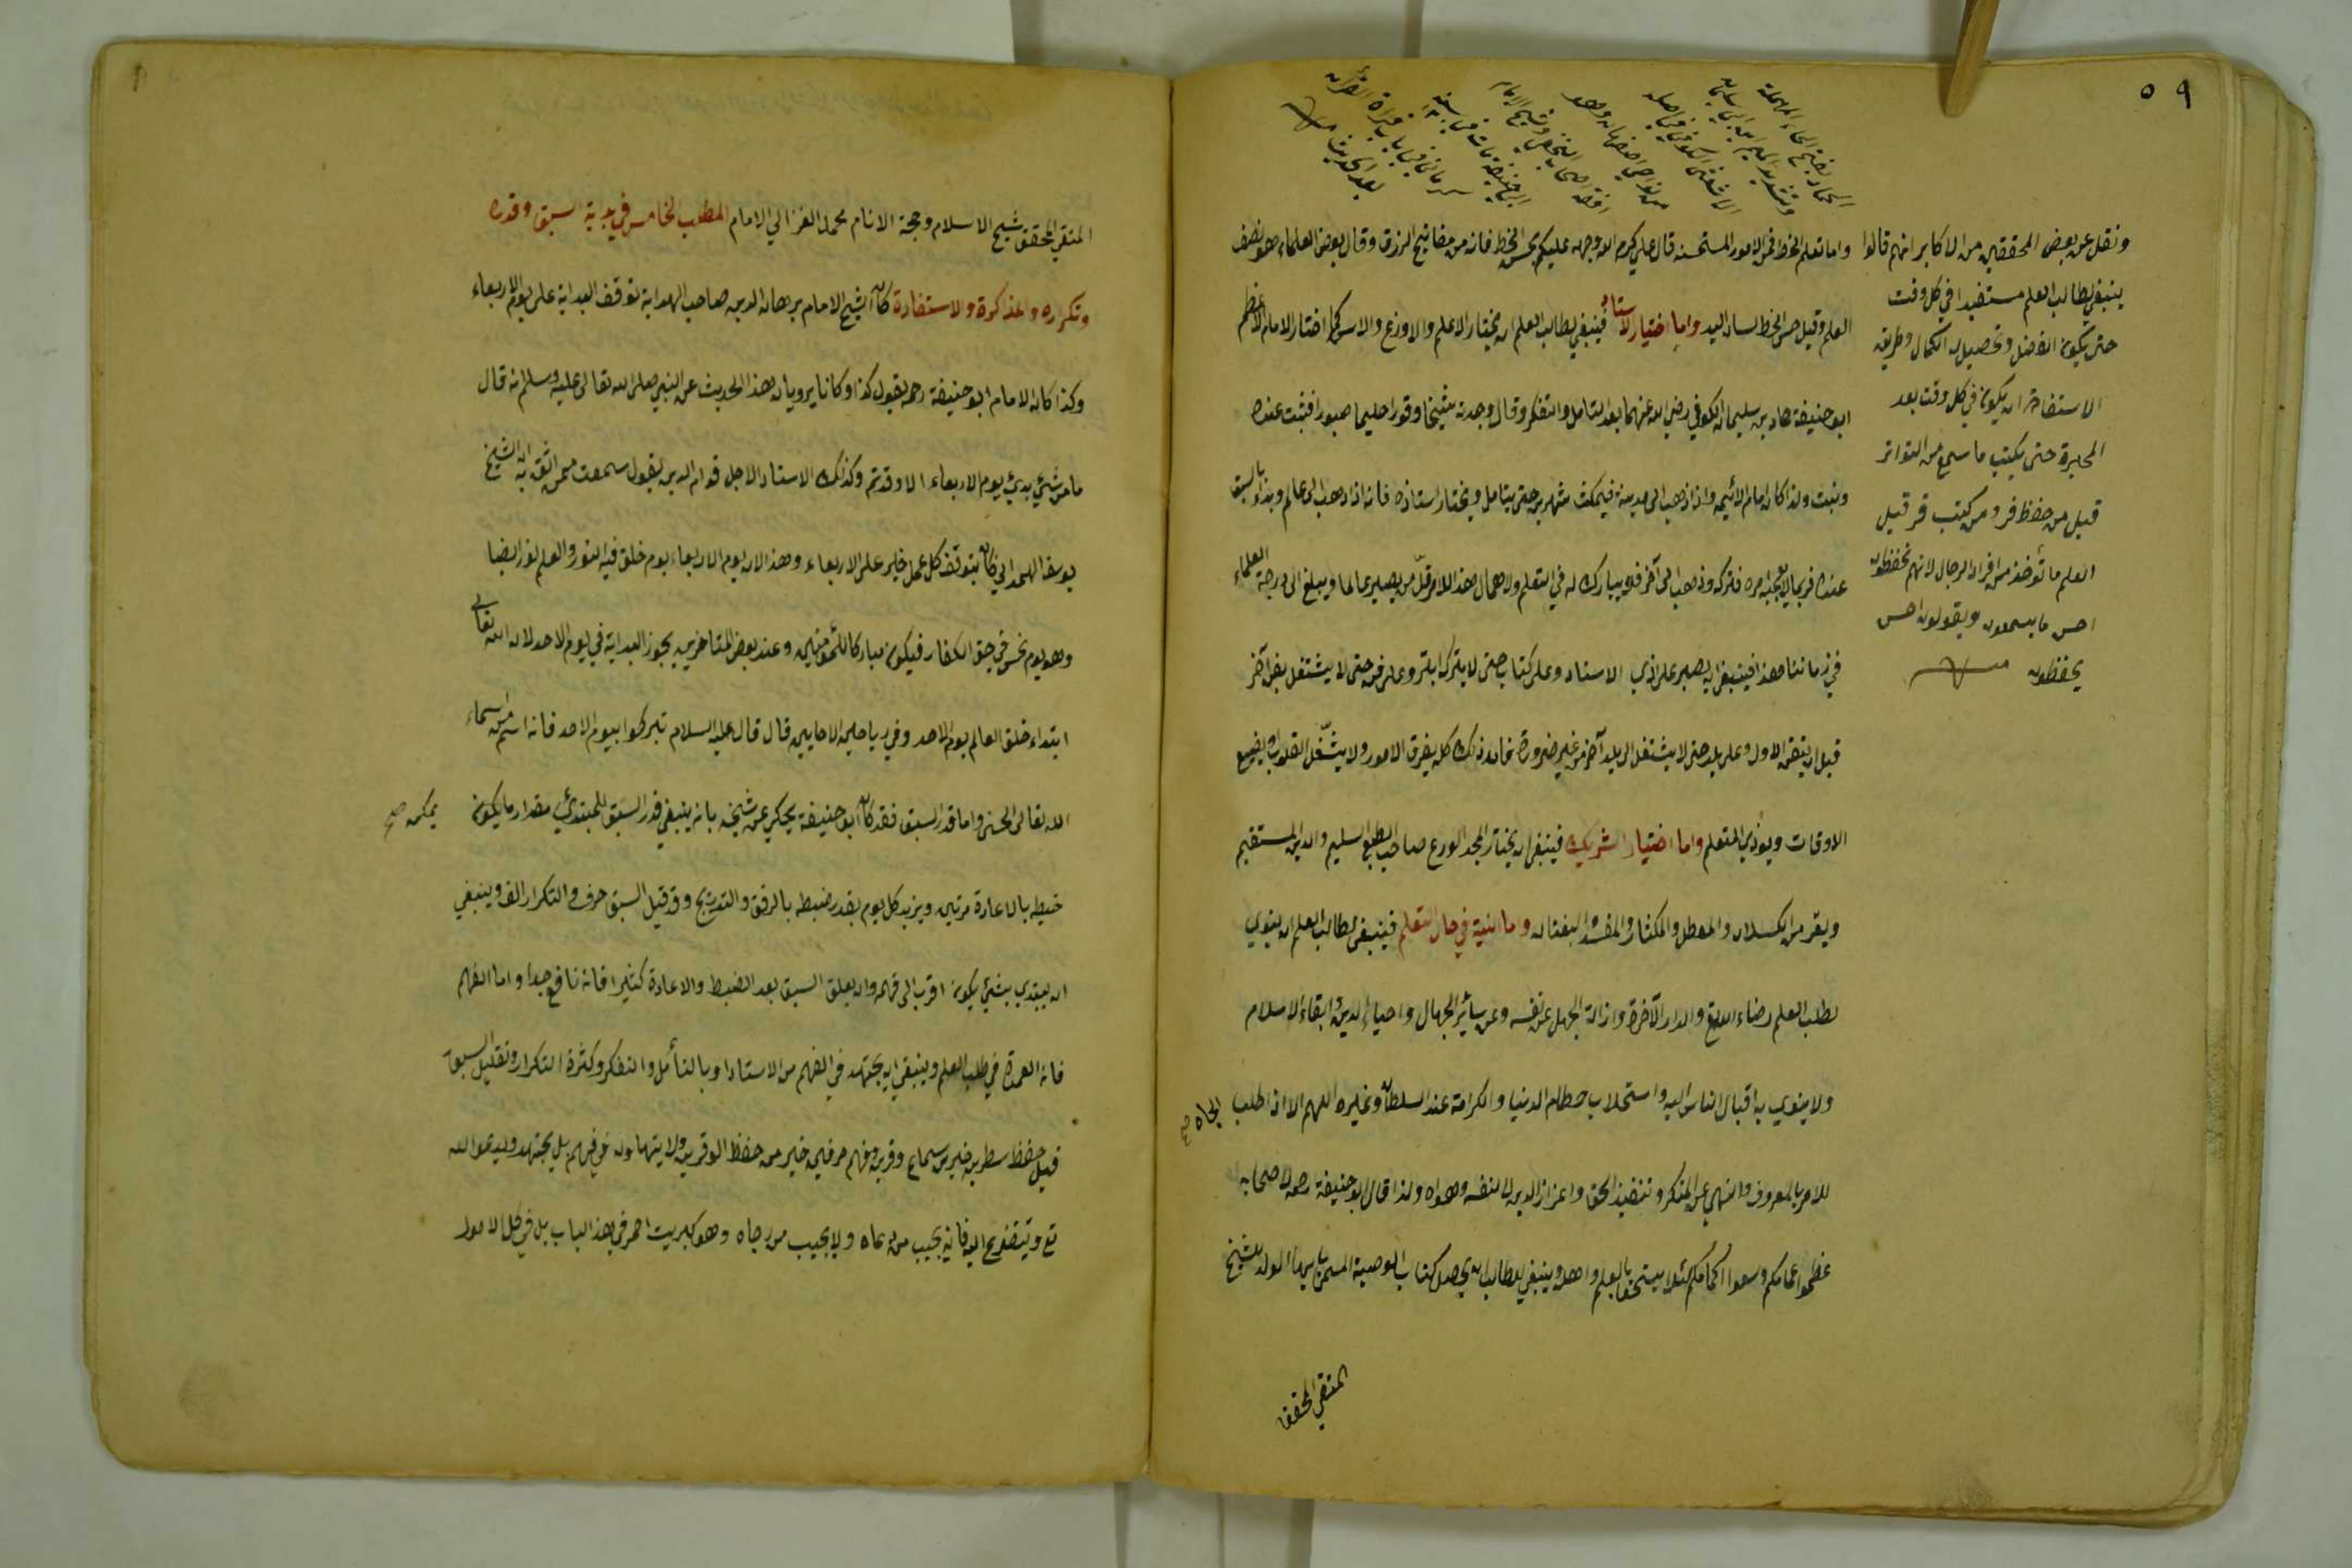 ٥٩
الحماد بفتح الحاء المهملة
وتشديد الميم ابن ابي سليمان
الاشعري الكوفي اصله
من نواحي اصفهان وهو
افقه اصحاب النخعي وشيخ الامام
ابي حنيفة مات في سنة
كرماني في باب قراءة القرآن
بعد الحديث
واما تعلم الخط فمن الامور المستحسنة قال علي كرم الله وجهه عليكم بحسن الخط فانه من مفاتيح الرزق وقال بعض العلماء هو نصف
العلم وقيل حسن الخط لسان اليد واما اختيار الاستاذ فينبغي لطالب العلم ان يختار الاعلم والاورع والاسن كما اختار الامام الاعظم
ابو حنيفة حماد بن سليمان الكوفي رضي الله عنهما بعد التامل والتفكر وقال وجدته شيخا وقورا حليما صبورا فثبت عنده
ونبت ولذا كان امام الائمة واذا ذهب الى مدينة فيمكث شهرين حتى يتامل ويختار استاذه فانه اذا ذهب الى عالم وبدأ بالسبق
عنده فربما لا يعجبه امره فتركه وذهب الى آخر فلا يبارك له في التعلم ولاهمال هذا الامر قل من يصير عالما ويبلغ الى درجة العلماء
في زماننا هذا فينبغي ان يصبر على اذي الاستاد وعلى كتاب حتى لا يتركه ابتر وعلى فن حتى لا يشتغل بفن آخر
قبل ان يتقن الاول وعلى بلد حتى لا يشتغل الى بلد آخر من غير ضرورة فان ذلك كله يفرق الامور ولا يشغل القلوب ويضيع
الاوقات ويوذي المتعلم واما اختيار الشريك فينبغي ان يختار المجد الورع صاحب الطبع السليم والدين المستقيم
ويفر من الكسلان والمعطل والمكثار والمفسد والفتان واما النية في حال التعلم فينبغي لطالب العلم ان ينوي
بطلب العلم رضاء الله تع والدار الآخرة وازالة الجهل عن نفسه وعن سائر الجهال واحياء الدين وابقاء الاسلام
ولا ينوي به اقبال الناس اليه واستجلاب حطام الدنيا والكرامة عند السلطان وغيره اللهم الا اذا طلب الجاه صح
للامر بالمعروف والنهي عن المنكر وتنفيذ الحق واعزاز الدين لا لنفسه وهواه ولذا قال ابو حنيفة رحمه لاصحابه
عظموا عمامكم وسعوا اكمامكم لئلا يستخف بالعلم واهله وينبغي للطالب ان يحصل كتاب الوصية المسمى بايها الولد للشيخ
المتقي المحقق
ونقل عن بعض المحققين من الاكابر انهم قالوا
ينبغي لطالب العلم مستفيدا في كل وقت
حتى يكون الفضل وتحصيل له الكمال وطريق
الاستفادة ان يكون في كل وقت بعد
المحبرة حتى يكتب ما سمع من التواتر
قيل من حفظ فر ومن كتب قر قيل
العلم ما تؤخذ من افراد الرجال لانهم يحفظون
احسن ما يسمعون ويقولون احسن
يحفظون
المتقي المحقق شيخ الاسلام وحجة الانام محمد الغزالي الامام المطلب الخامس في بداية السبق وقدره
وتكراره والمذاكرة والاستفادة كان الشيخ الامام برهان الدين صاحب الهداية توقف البداية على يوم الاربعاء
وكذا كان الامام ابو حنيفة رحمه يقول كذا وكانا يرويان هذا الحديث عن النبي صلى الله تعالى عليه وسلم انه قال
ما من شيء بدئ يوم الاربعاء الا وقد تم وكذلك الاستاد الاجل قوام الدين يقول سمعت ممن اثق به ان الشيخ
يوسف الهمداني كان يتوقف كل عمل خير على الاربعاء وهذا لان يوم الاربعاء يوم خلق فيه النور والعلم نور ايضا
وهو يوم نحس في حق الكفار فيكون مباركا للمؤمنين وعند بعض المتاخرين يجوز البداية في يوم الاحد لان الله تعالى
ابتداء خلق العالم يوم الاحد وفي رياحين الاحايين قال قال عليه السلام تبركوا بيوم الاحد فانه اسم من اسماء
الله تعالى الحسنى واما قدر السبق فقد كان ابو حنيفة يحكي عن شيخه بانه ينبغي قدر السبق للمبتدئ مقدار ما يكون يمكن صح
ضبطه بالاعادة مرتين ويزيد كل يوم بقدر ضبطه بالرفق والتدريج وقد قيل السبق حرف والتكرار الف وينبغي
ان يبتدي بشيء يكون اقرب الى فهمه وان يعلق السبق بعد الضبط والاعادة كثيرا فانه نافع جدا واما الفهم
فانه العمدة في طلب العلم وينبغي ان يجتهد في الفهم من الاستاد او بالتأمل والتفكر وكثرة التكرار وتقليل السبق
قيل حفظ سطرين خير من سماع وقرين وفهم حرفين خير من حفظ الوقرين ولا يتهاون في فهم بل يجتهد ويدعوا الله
تع ويتضرع اليه فانه يجيب من دعاه ولا يخيب من رجاه وهو كبريت احمر في هذا الباب بل في كل الامور